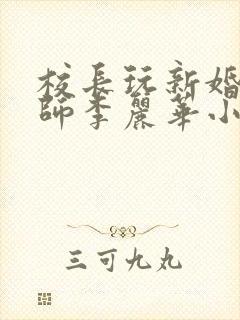 校長玩新婚
師李麗華小
三可九丸